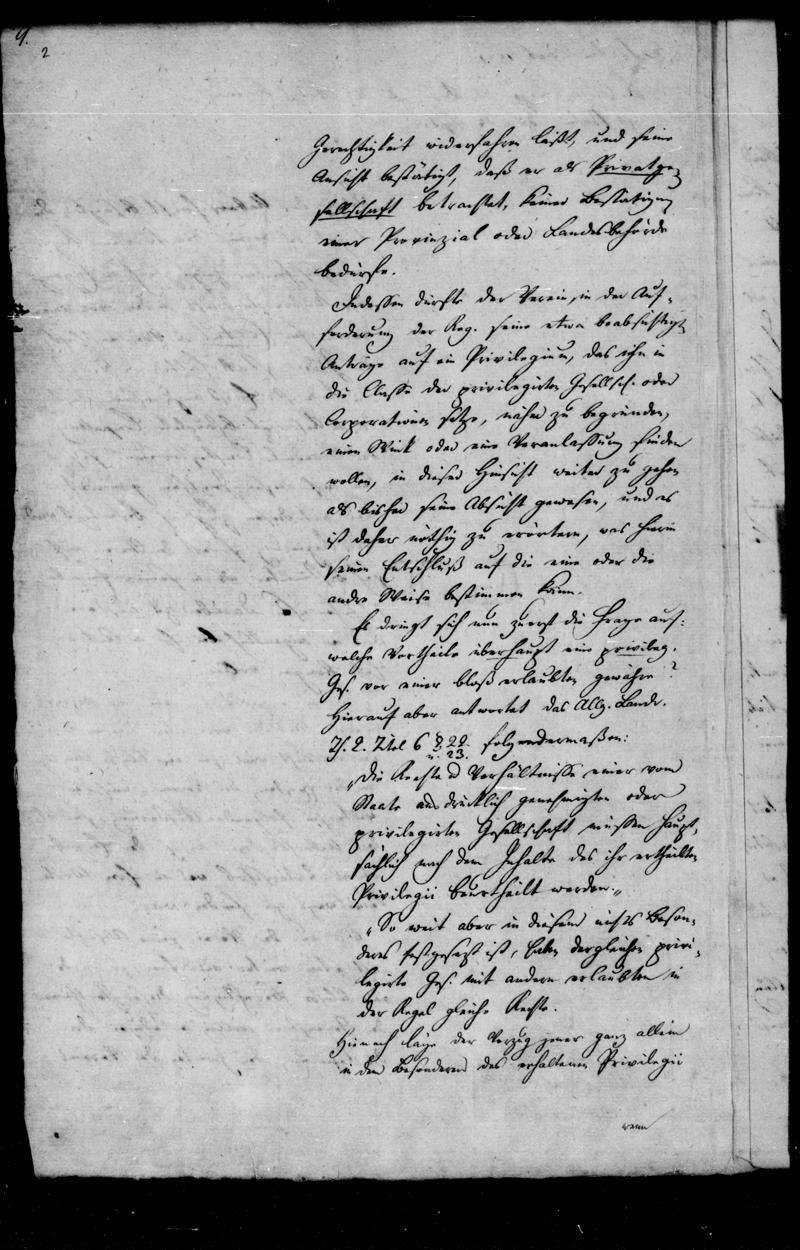 9.
2
Gerechtigkeit widerfahren läßt, und seine
Ansicht bestätigt, daß er als Privatge-
sellschaft betrachtet, keiner Bestätigung
einer Provinzial oder Landesbehörde
bedürfe.
Indessen dürfte der Verein, in der Auf-
forderung der Reg. seine etwa beabsichtigt
Anträge auf ein Privilegium, das ihn in
die Classe der privilegirten Gesellsch. oder
Corporationen setze, näher zu begründen,
einen Wink oder eine Veranlassung finden
wollen, in dieser Hinsicht weiter zu gehen
als bisher seine Absicht gewesen, und es
ist daher nöthig zu erörtern, was hierin
seinen Entschluß auf die eine oder die
andre Weise bestimmen kann.
Es dringt sich nun zuerst die Frage auf:
welche Vortheile überhaupt eine privileg.
Ges. vor einer bloß erlaubten gewähre?
Hierauf aber antwortet das Allg. Landr.
Th. 2. Titel 6 § 22. folgendermaßen:
u. 23.
„Die Rechte u Verhältnisse einer vom
Staate ausdrücklich genehmigten oder
privilegirten Gesellschaft müssen haupt-
sächlich nach dem Inhalte des ihr ertheilten
Privilegii beurtheilt werden.„
„So weit aber in diesem nichts beson-
deres festgesetzt ist, haben dergleichen privi-
legirte Ges. mit andern erlaubten in
der Regel gleiche Rechte.
Hienach läge der Vorzug jener ganz allein
in dem Besonderen des erhaltenen Privilegii
wenn